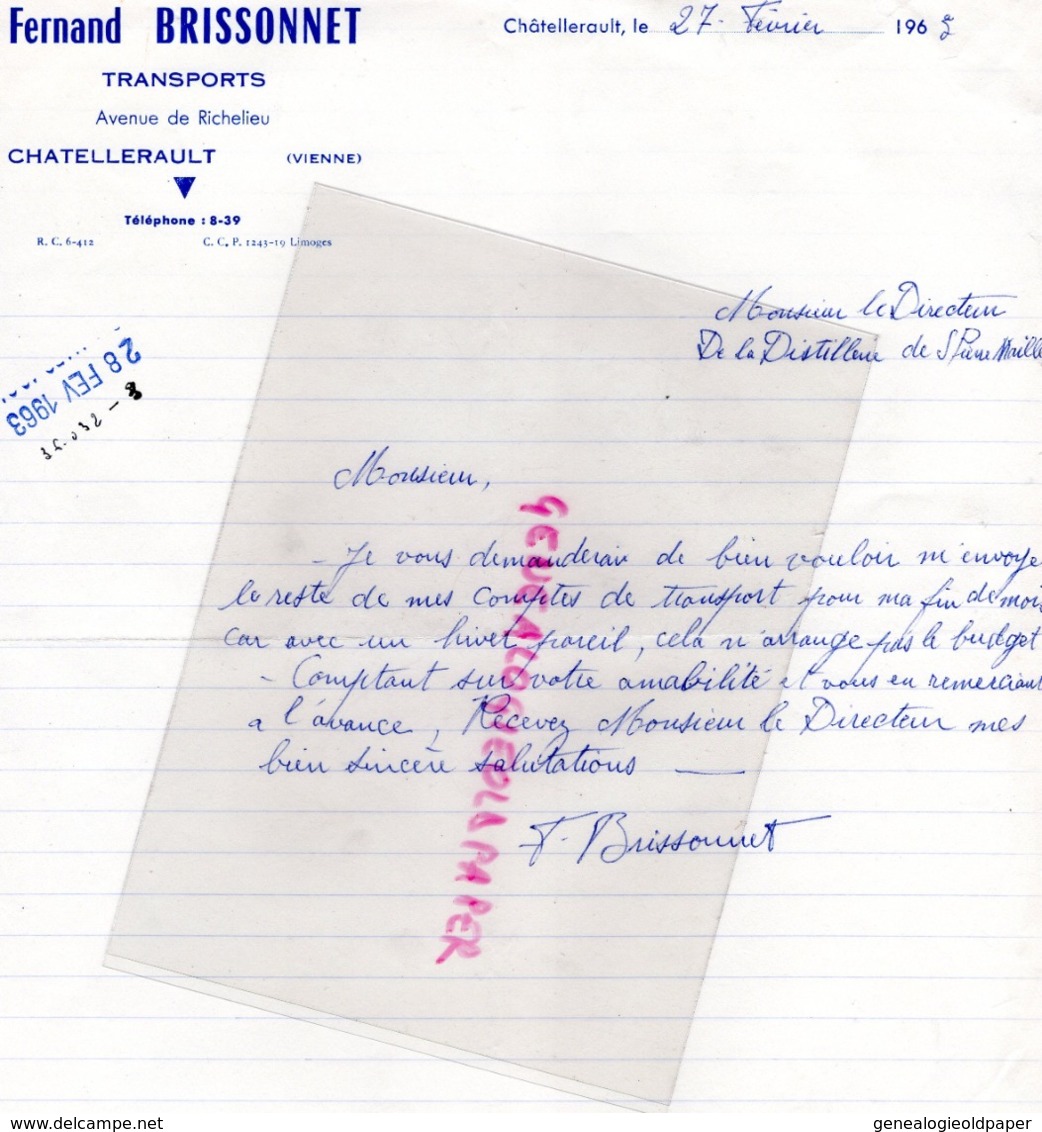 Fernand BRISSONNET
TRANSPORTS
Avenue de Richelieu
CHATELLERAULT (VIENNE)
Téléphone : 8-39
R. C. 6-412 C. C. P. 1243-19 Limoges
Châtellerault, le 27 - Février 1963
Monsieur le Directeur
De la Distillerie de St Pierre Maille
28 FEV 1963
Monsieur,
- Je vous demanderai de bien vouloir m'envoye
le reste de mes comptes de transport pour ma fin de mois
car avec un hiver pareil, cela n'arrange pas le budget
- Comptant sur votre amabilité et vous en remerciant
a l'avance, Recevez Monsieur le Directeur mes
bien sincère salutations
F. Brissonnet
GENEALOGIEOLDPAPER
genealogieoldpaper